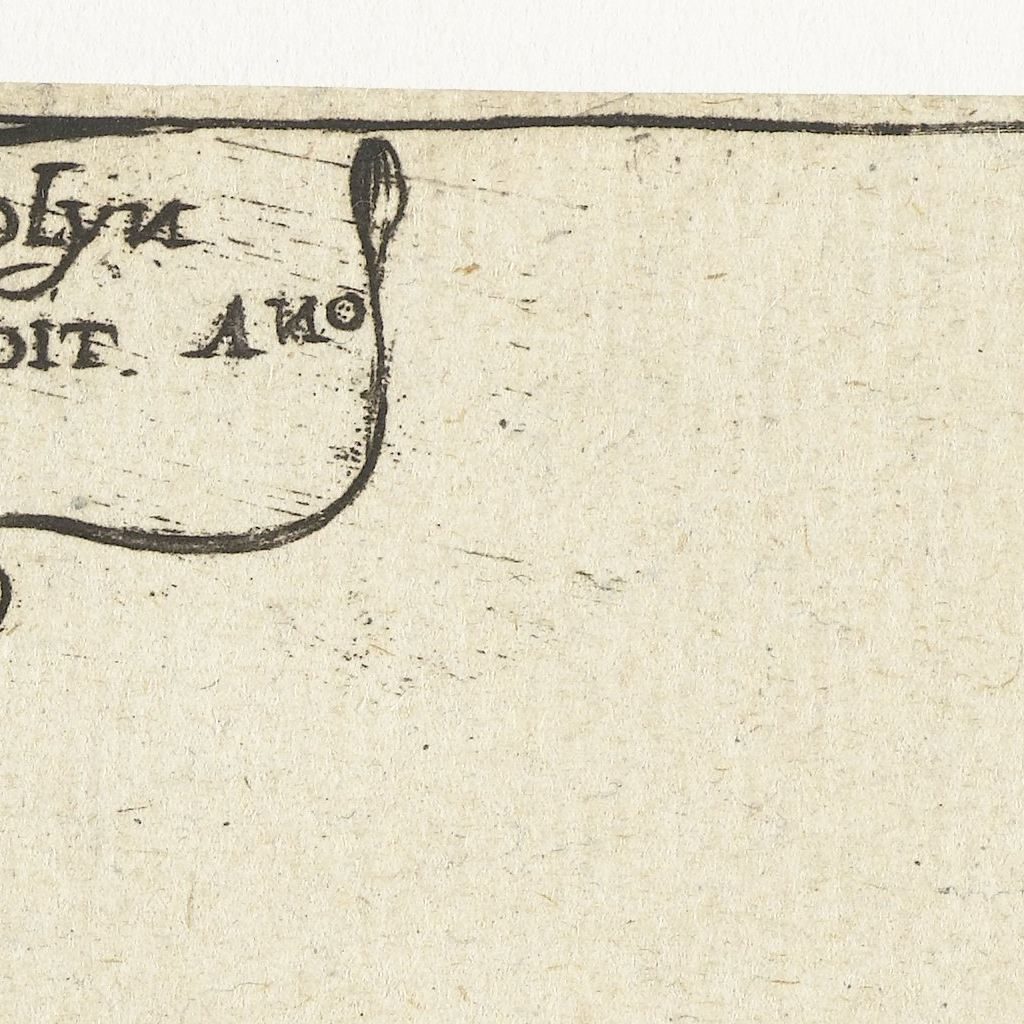 olyn
DIT. ANo